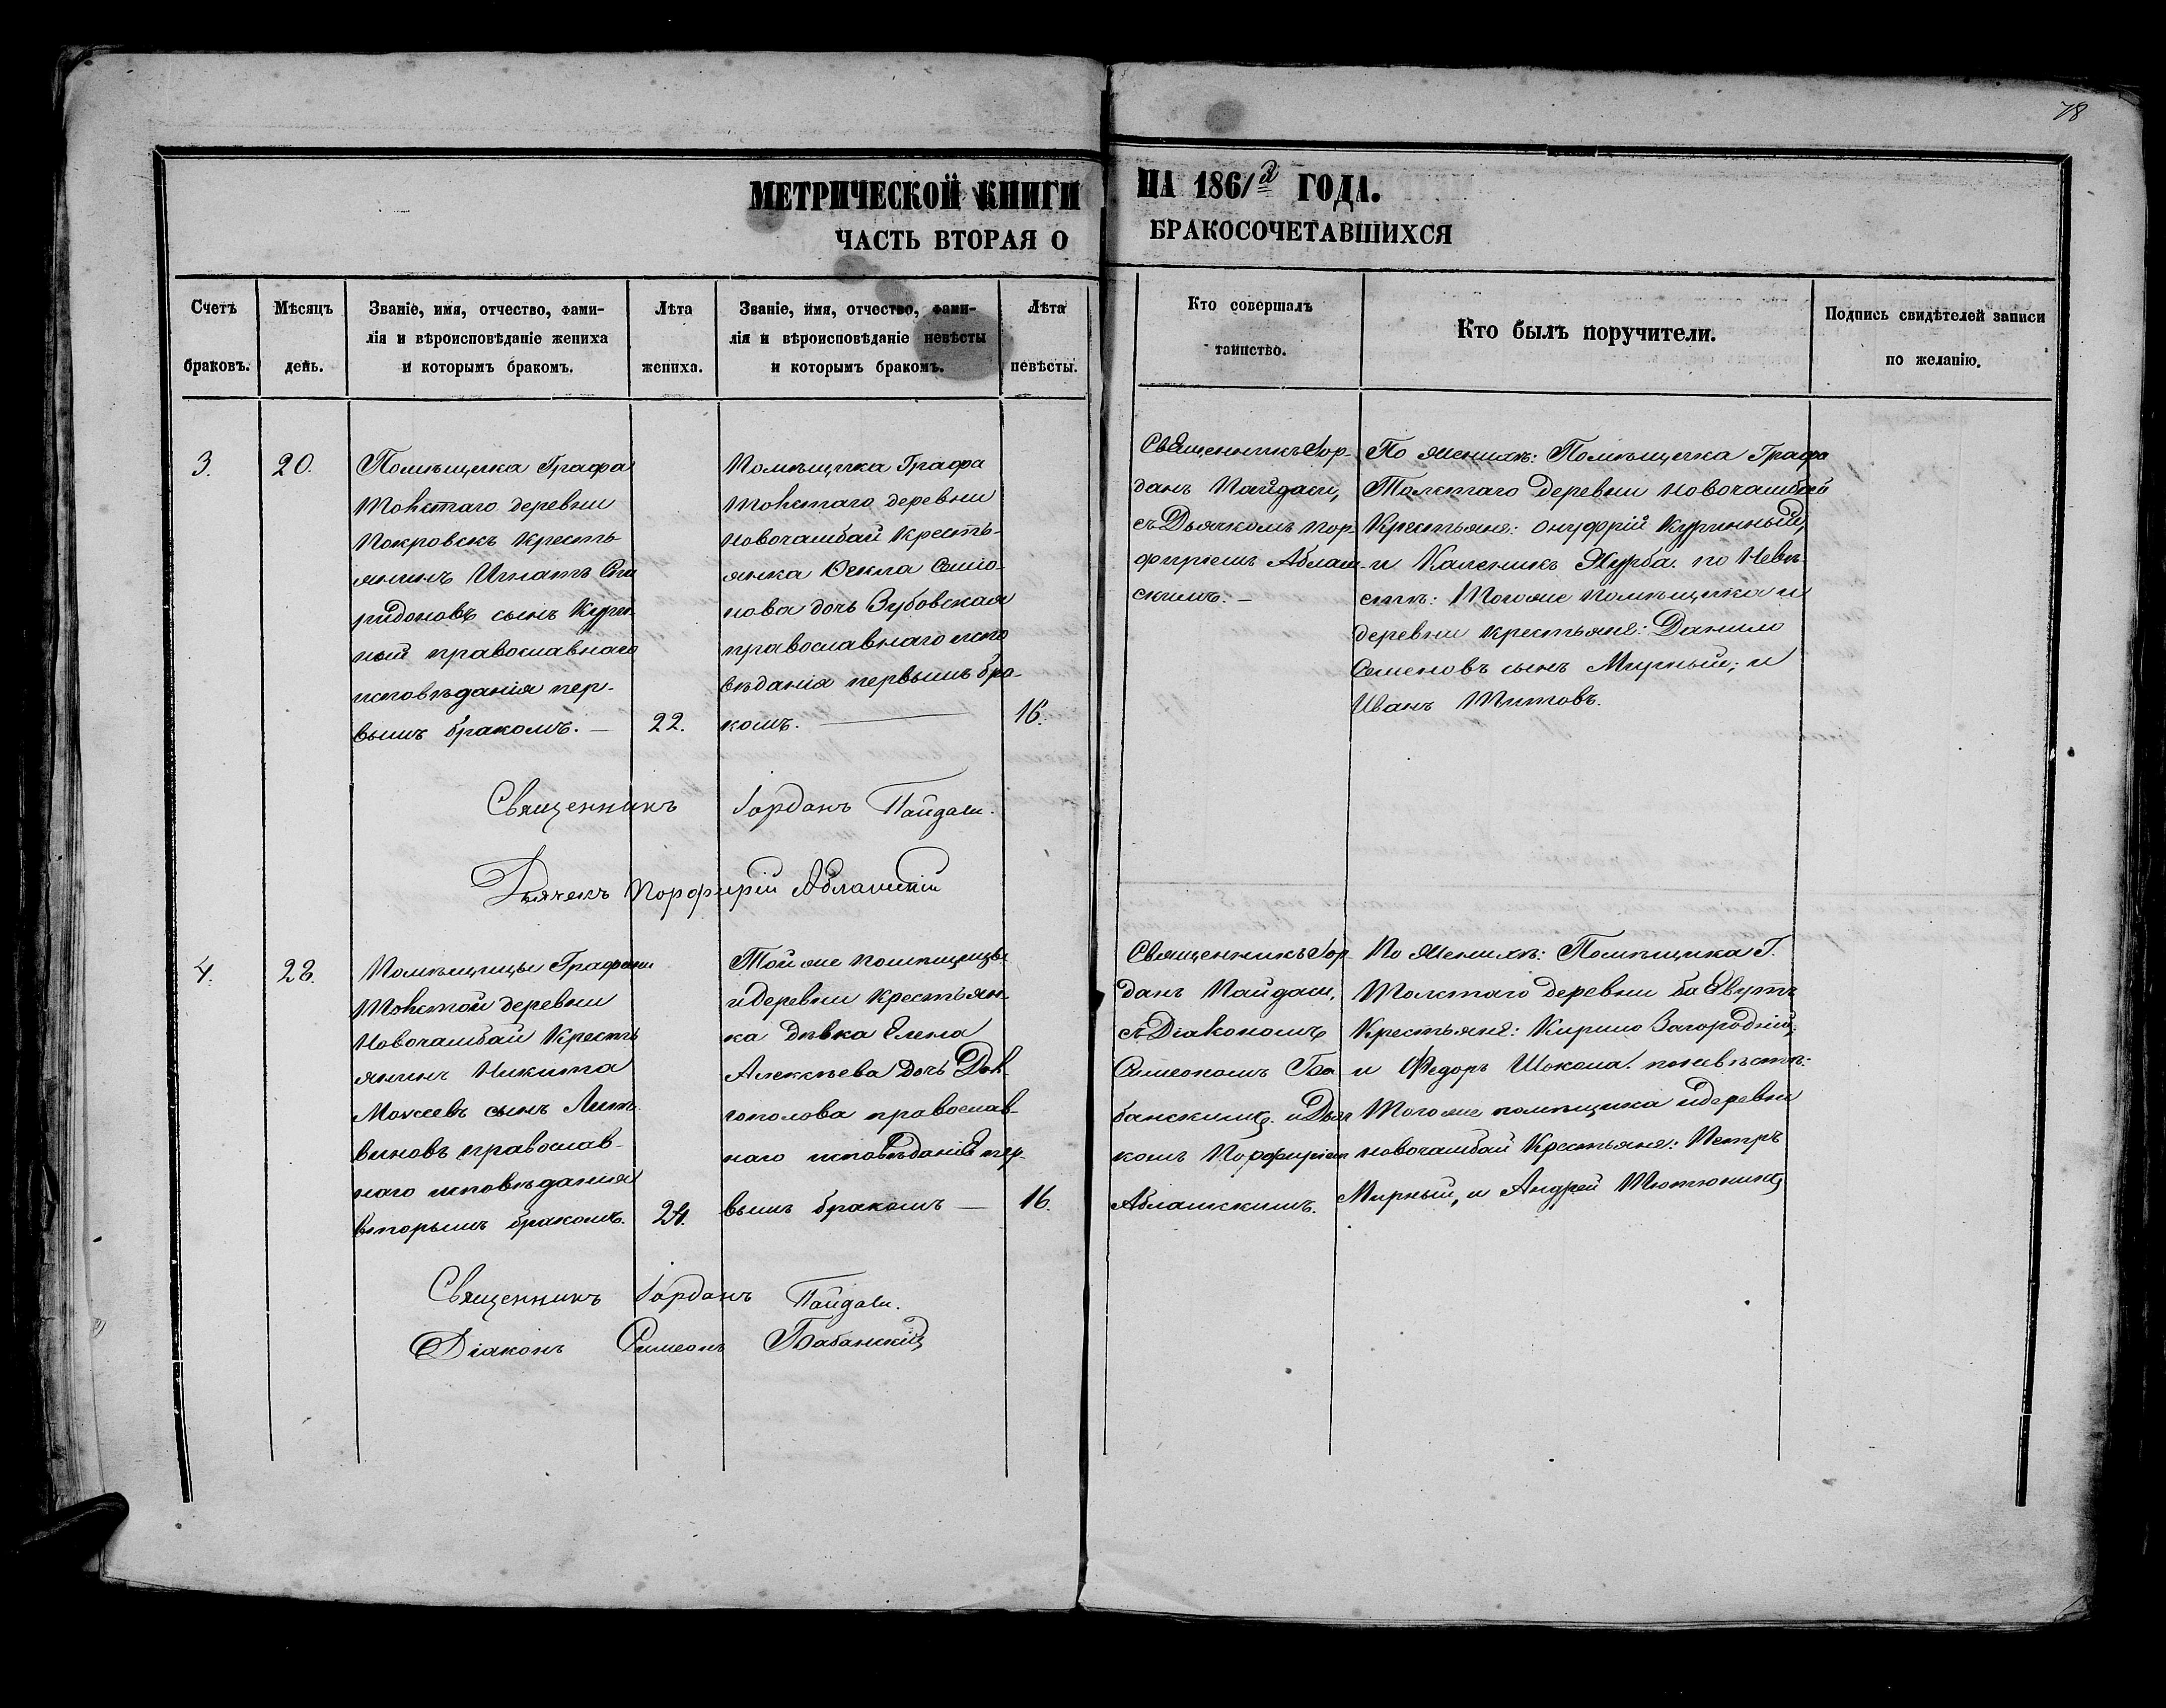 78
МЕТРИЧЕСКОЙ КНИГИ НА 1861й ГОДА.
ЧАСТЬ ВТОРАЯ О БРАКОСОЧЕТАВШИХСЯ
Счетъ браковъ.
Мѣсяцъ день.
Званіе, имя, отчество, фами-
лія и вѣроисповѣданіе жениха
и которымъ бракомъ.
Лѣта жениха.
Званіе, имя, отчество, фами-
лія и вѣроисповѣданіе невѣсты
и которымъ бракомъ.
Лѣта невѣсты.
Кто совершалъ
таинство.
Кто былъ поручители.
Подпись свидѣтелей записи
по желанію.
3.
20.
Помѣщика Графа
Толстаго деревни
Покровскъ Кресть-
янинъ Игнатъ Спи
ридоновъ сынъ Курен
ный православнаго
исповѣданія пер-
вымъ бракомъ. —
22.
Помѣщика Графа
Толстаго деревни
Новочамбай Кресть-
янка Фекла Симо-
нова дочь Зубовская
православнаго испо
вѣданія первымъ бра-
комъ. —
16.
Священникъ Іор-
данъ Пайдаси,
съ Дьячкомъ Пор-
фиріемъ Аблам-
скимъ. —
По Женихѣ: Помѣщика Графа
Толстаго деревни Новочамбай
Крестьяне: Онуфрій Куринный,
и Каленикъ Журба. по Невѣ-
стѣ: Тогоже помѣщика и
деревни крестьяне: Данило
Семеновъ сынъ Мирный; и
Иванъ Титовъ.
Священникъ Іорданъ Пайдаси.
Дьячекъ Порфирій Абламскій
4.
28.
Помѣщицы Графини
Толстой деревни
Новочамбай Кресть
янинъ Никита
Моисеевъ сынъ Лит-
виновъ православ-
наго исповѣданія
вторымъ бракомъ.
24.
Тойже помѣщицы
и деревни крестьян-
ка дѣвка Елена
Алексѣева дочь Дол-
гополова православ-
наго исповѣданія пер-
вымъ бракомъ —
16.
Священникъ Іор
данъ Пайдаси,
съ Діакономъ
Симеономъ Ба
банскимъ. и Дьяч
комъ Порфиріем
Абламскимъ.
По Женихѣ: Помѣщика Г.
Толстаго деревни
Крестьяне: Кирило Загородній,
и Федоръ Шокола. по невѣстѣ:
Тогоже помѣщика и деревни
Новочамбай Крестьяне: Петръ
Мирный, и Андрей Тютюникъ
Священникъ Іорданъ Пайдаси.
Діаконъ Симеонъ Бабанскій